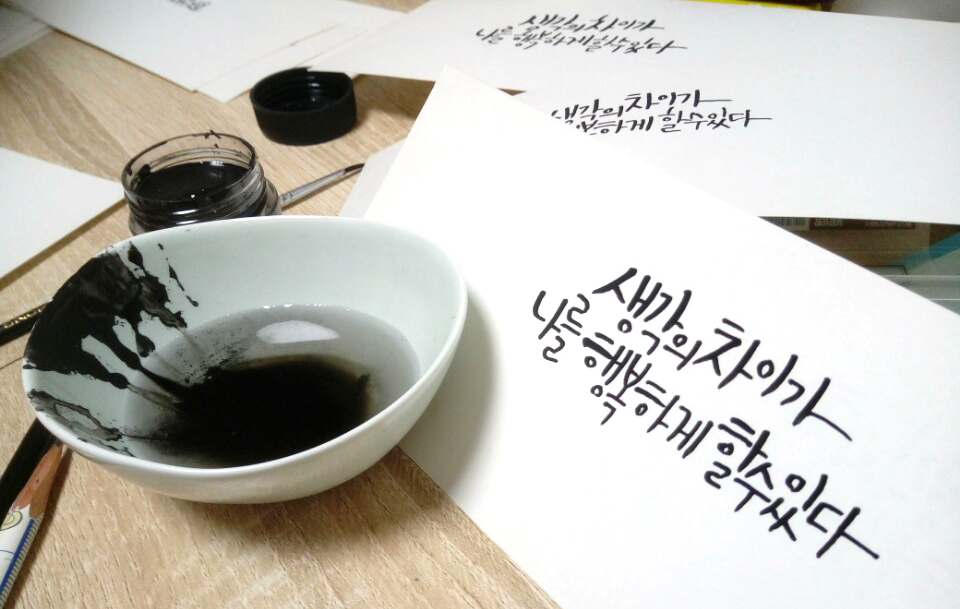 생각의 차이가
나를 행복하게 할수있다
생각의 차이가
행복하게 할수있다
생각의 차이가
나를 행복하게 할수있다